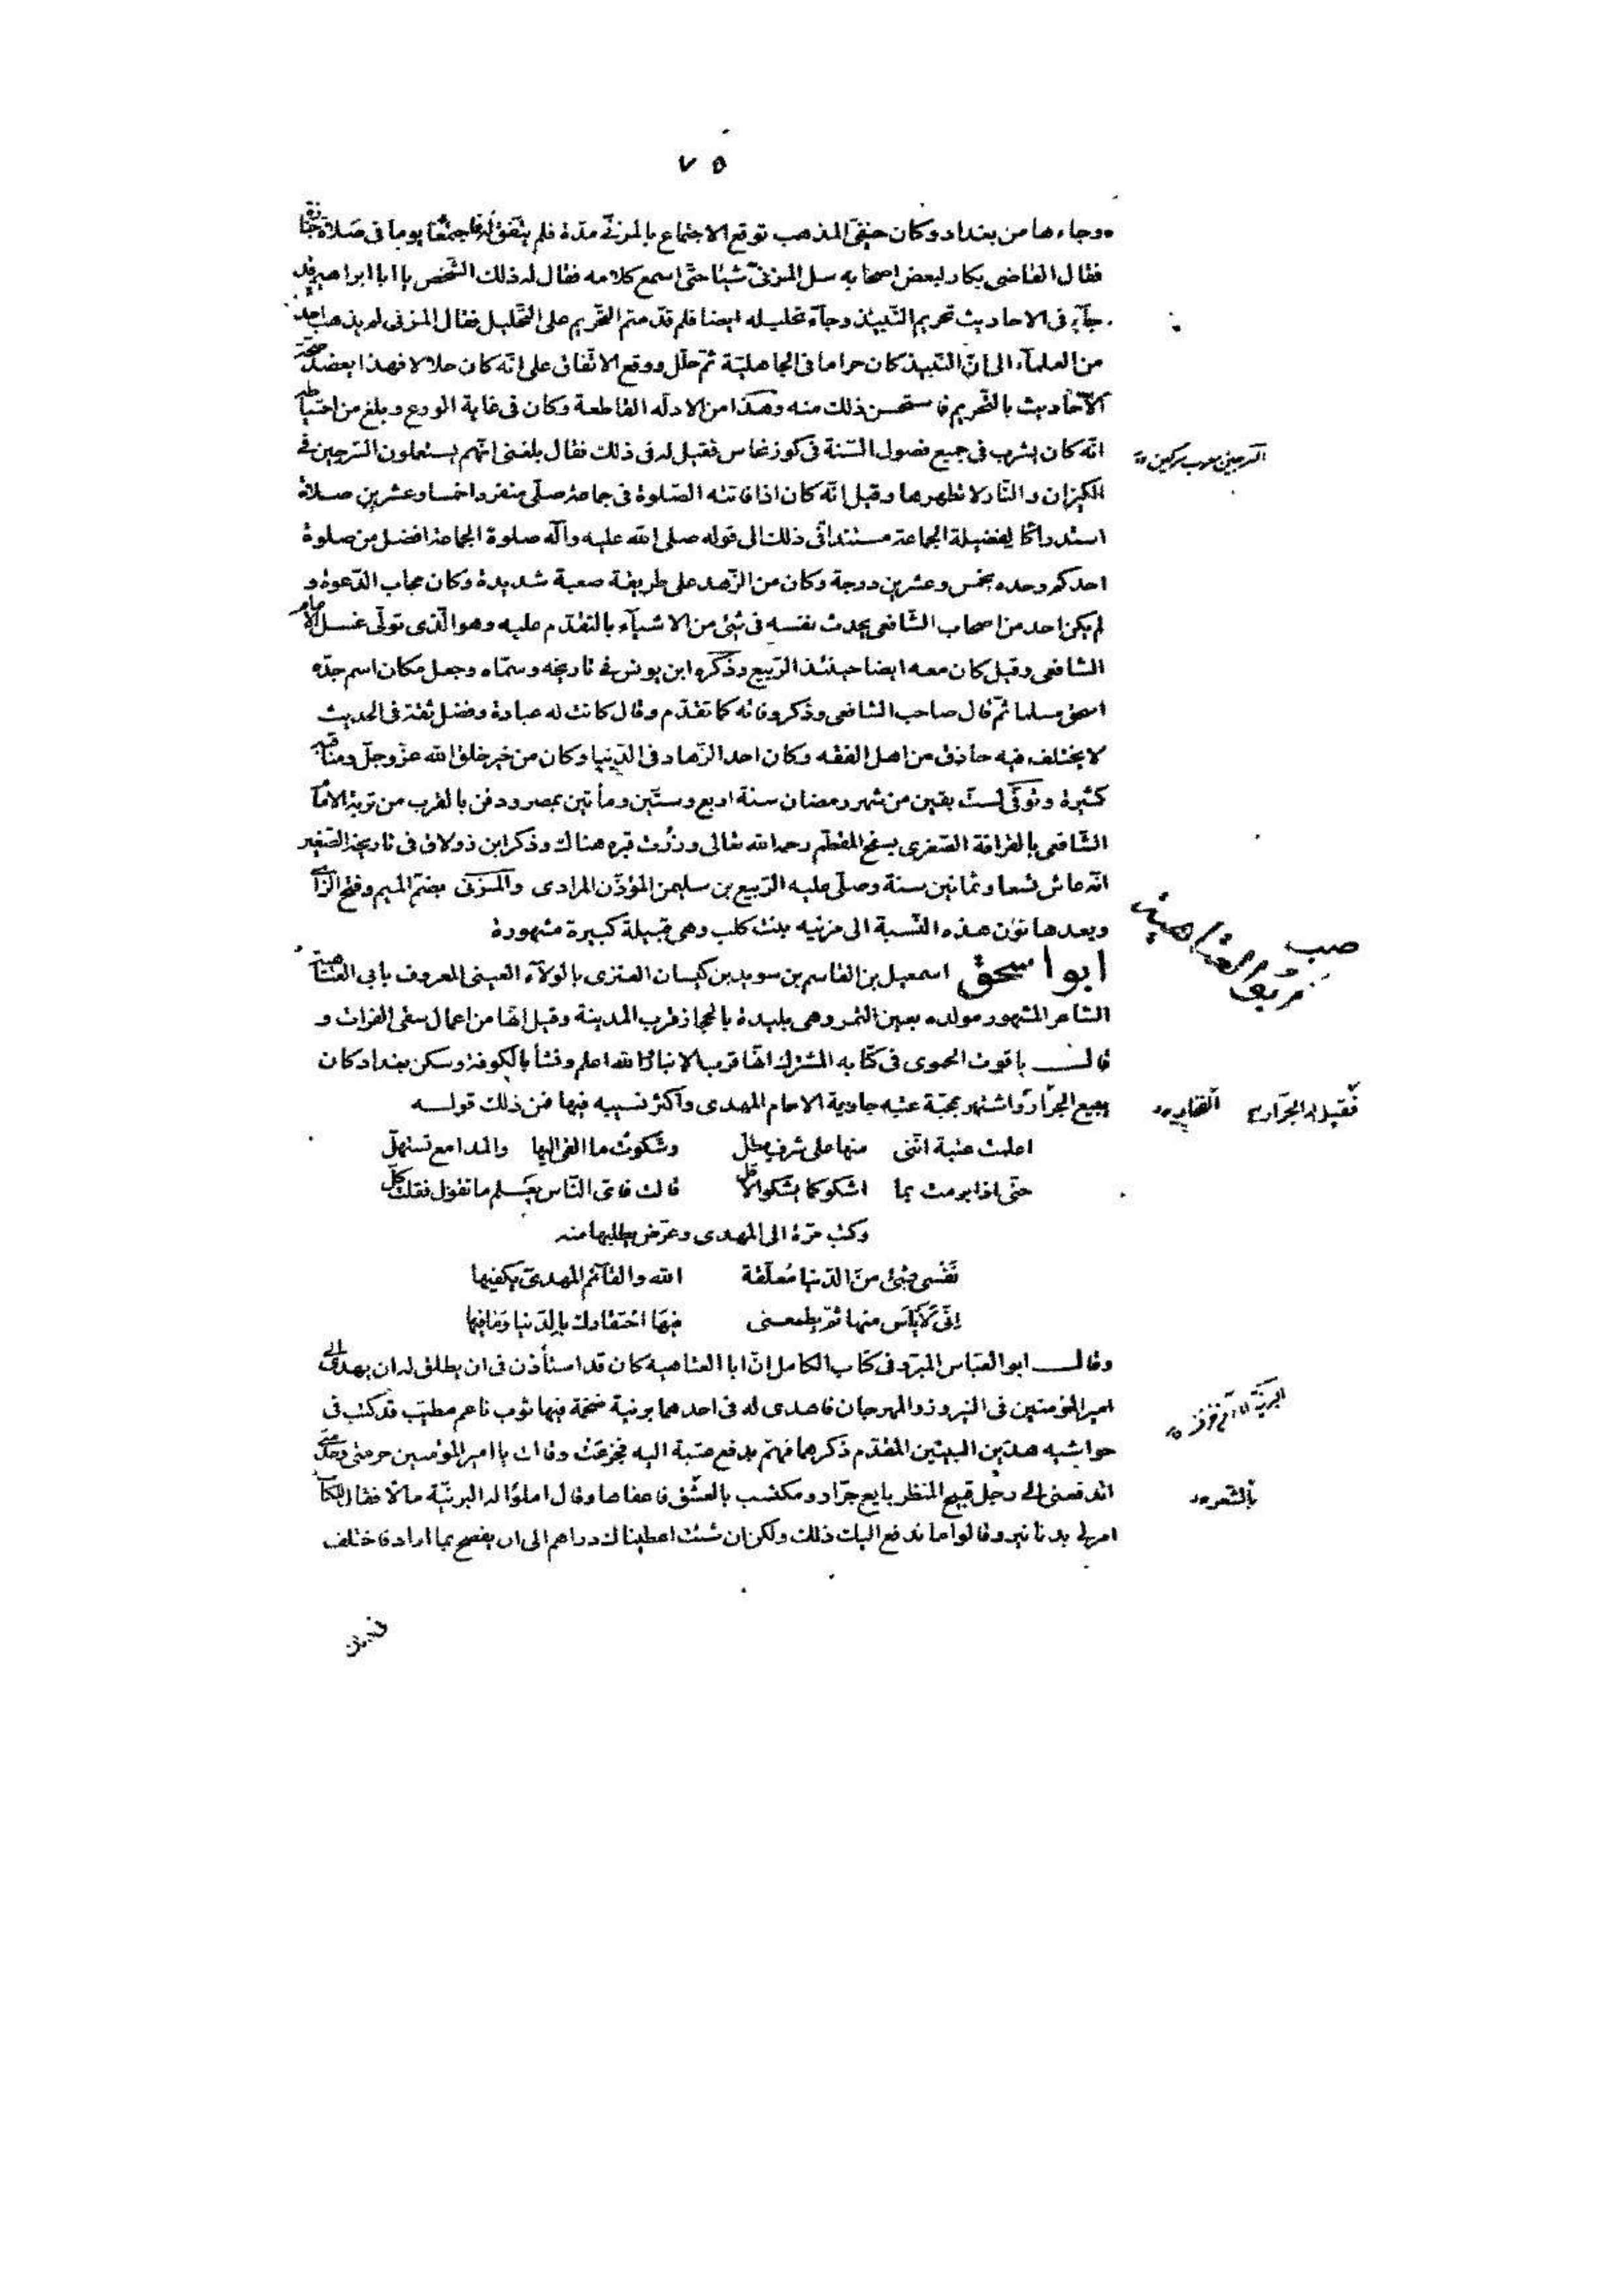 ٧٥
وجاءها من بغداد وكان حنفى المذهب توقع الاجتماع بالمزنى مدّة فلم يتّفق له فاجتمعا يوما فى صلاة جنازة
فقال القاضى بكار لبعض اصحابه سل المزنىّ شيئا حتّى اسمع كلامه فقال له ذلك الشّخص يا ابا ابراهيم قد
جآء فى الاحاديث تحريم النّبيذ وجآء تحليله ايضا فلم قدّمتم التّحريم على التّحليل فقال المزنى لم يذهب احد
من العلمآء الى انّ النّبيذ كان حراما فى الجاهليّة ثمّ حلّل ووقع الاتّفاق على انّه كان حلالا فهذا يعضد صحّة
الاحاديث بالتّحريم فاستحسن ذلك منه وهذا من الادلّه القاطعة وكان فى غاية الورع وبلغ من احتياطه
انّه كان يشرب فى جميع فصول السّنة فى كوز نحاس فقيل له فى ذلك فقال بلغنى انّهم يستعملون السّرجين فى
السرجين معرب سركين
الكيزان والنّار لا تطهرها وقيل انّه كان اذا فاتته الصّلوة فى جماعة صلّى منفردا خمسا وعشرين صلاة
استدراكا لفضيلة الجماعة مستندا فى ذلك الى قوله صلى الله عليه وآله صلوة الجماعة افضل من صلوة
احدكم وحده بخمس وعشرين درجة وكان من الزّهد على طريقة صعبة شديدة وكان مجاب الدّعوة و
لم يكن احد من اصحاب الشّافعى يحدث نفسه فى شئ من الاشيآء بالتقدّم عليه وهو الّذى تولّى غسل الامام
الشافعى وقيل كان معه ايضا حينئذ الرّبيع وذكره ابن يونس فى تاريخه وسمّاه وجعل مكان اسم جدّه
اسحق مسلما ثمّ قال صاحب الشافعى وذكر وفاته كما تقدّم وقال كانت له عبادة وفضل ثقة فى الحديث
لا يختلف فيه حاذق من اهل الفقه وكان احد الزّهاد فى الدّنيا وكان من خير خلق الله عزّ وجلّ ومناقبه
كثيرة وتوفّى لستّ بقين من شهر رمضان سنة اربع وستّين ومأتين بمصر ودفن بالقرب من تربة الامام
الشّافعى بالقرافة الصّغرى بسفح المقطّم رحمه الله تعالى وزرت قبره هناك وذكر ابن زولاق فى تاريخه الصّغير
انّه عاش تسعا وثمانين سنة وصلّى عليه الرّبيع بن سليمن المؤذّن المرادى والمزنى بضمّ الميم وفتح الزّاى
وبعدها نون هذه النّسبة الى مزينه بنت كلب وهى قبيلة كبيرة مشهورة
ابو اسحق اسمعيل بن القاسم بن سويد بن كيسان العنزى بالولآء العينى المعروف بابى العتاهية
الشاعر المشهور مولده بعين التمر وهى بليدة بالحجاز قرب المدينة وقيل انّها من اعمال سقى الفرات و
قال ياقوت الحموى فى كتابه المشترك انّها قرب الانبار والله اعلم ونشأ بالكوفة وسكن بغداد كان
يبيع الجرّار واشتهر بمحبّة عتبه جارية الامام المهدى واكثر نسيبه فيها فمن ذلك قوله
فقيل له الجرّار
اعلمت عتبة انّنى منها على شرف مطلّ وشكوت ما القى اليها والمدامع تستهلّ
حتّى اذا برمت بما اشكو كما يشكو الاقلّ قالت فاىّ النّاس يعلم ما تقول فقلت كلّ
وكتب مرّة الى المهدى وعرّض بطلبها منه
نفسى بشئ من الدّنيا معلّقة الله والقآئم المهدىّ يكفيها
انّى لايأس منها ثمّ يطمعنى فيها احتقارك بالدّنيا وما فيها
وقال ابو العبّاس المبرّد فى كتاب الكامل انّ ابا العتاهيه كان قد استأذن فى ان يطلق له ان يهدى الى
امير المؤمنين فى النيروز والمهرجان فاهدى له فى احدهما برنية ضخمة فيها ثوب ناعم مطيّب قد كتب فى
حواشيه هذين البيتين المقدّم ذكرهما فهمّ بدفع عتبة اليه فجزعت وقالت يا امير المؤمنين حرمتى وخدمتى
اتدفعنى الى رجل قبيح المنظر بايع جرّار ومكتسب بالعشق فاعفاها وقال املؤا له البرنيّة مالا فقال للكتّاب
بالشعر
امر لى بدنانير وقالوا ما ندفع اليك ذلك ولكن ان شئت اعطيناك دراهم الى ان يفصح بما اراد فاختلف